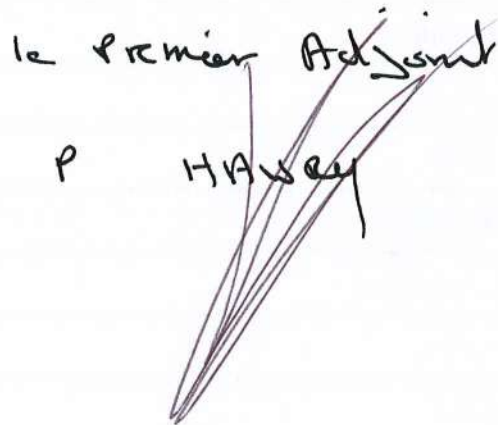 le Premier Adjoint
P HAVRY